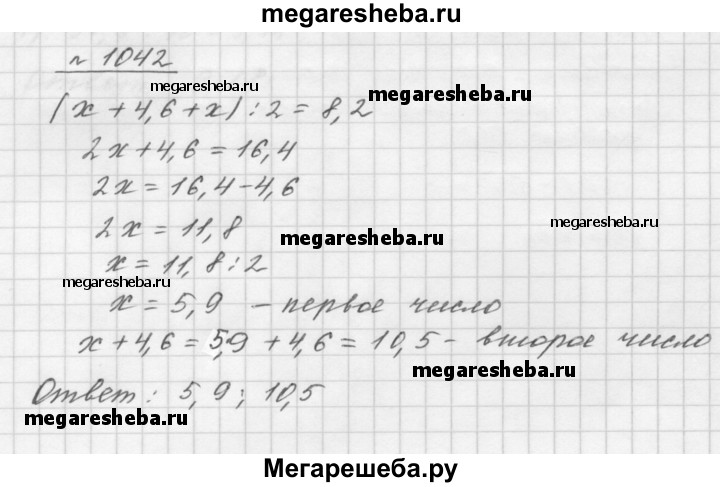 megaresheba.ru
№ 1042
megaresheba.ru
megaresheba.ru
(x + 4,6 + x) : 2 = 8,2
2x + 4,6 = 16,4
2x = 16,4 - 4,6
2x = 11,8
megaresheba.ru
megaresheba.ru
x = 11,8 : 2
megaresheba.ru
x = 5,9 - первое число
x + 4,6 = 5,9 + 4,6 = 10,5 - второе число
megaresheba.ru
Ответ: 5,9; 10,5
megaresheba.ru
Мегарешеба.ру